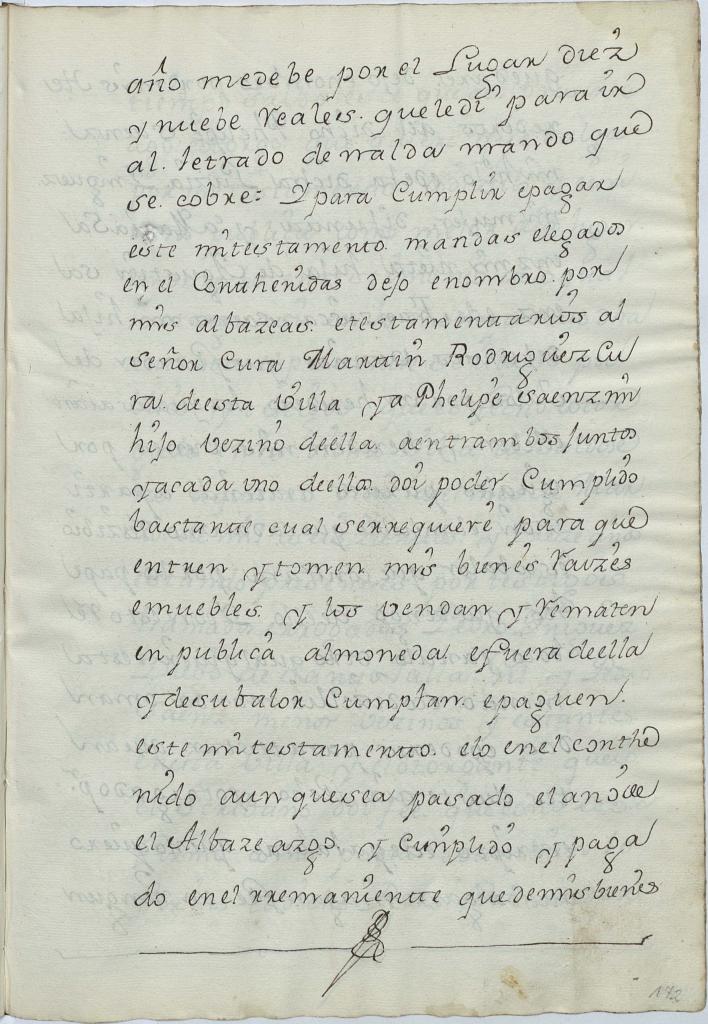 año medebe por el Lugar diez
y nuebe reales. queledi para ir
al. letrado de nalda mando que
se. cobre: Y para Cumplir epagar
este mitestamento. mandas elegados
en el Conthenidas dejo enombro. por
mis albazeas. etestamenttarios al
señor Cura Marttin Rodriguez Cu
ra. deesta Villa ya Phelipe saenz mi
hijo vezino deella aentrambos Juntos
yacada vno deellos doi poder Cumplido
bastantte cual serrequiere para que
entren ytomen mis bienes Raizes
emuebles. y los vendan y Rematen
en publica almoneda. efuera deella
ydesubalor Cumplan. epaguen.
este mitestamentto. elo enel conthe
nido aunquesea pasado el año de
el Albazeazgo. y Cunplido y paga
do enel rremanientte quedemis bienes
172